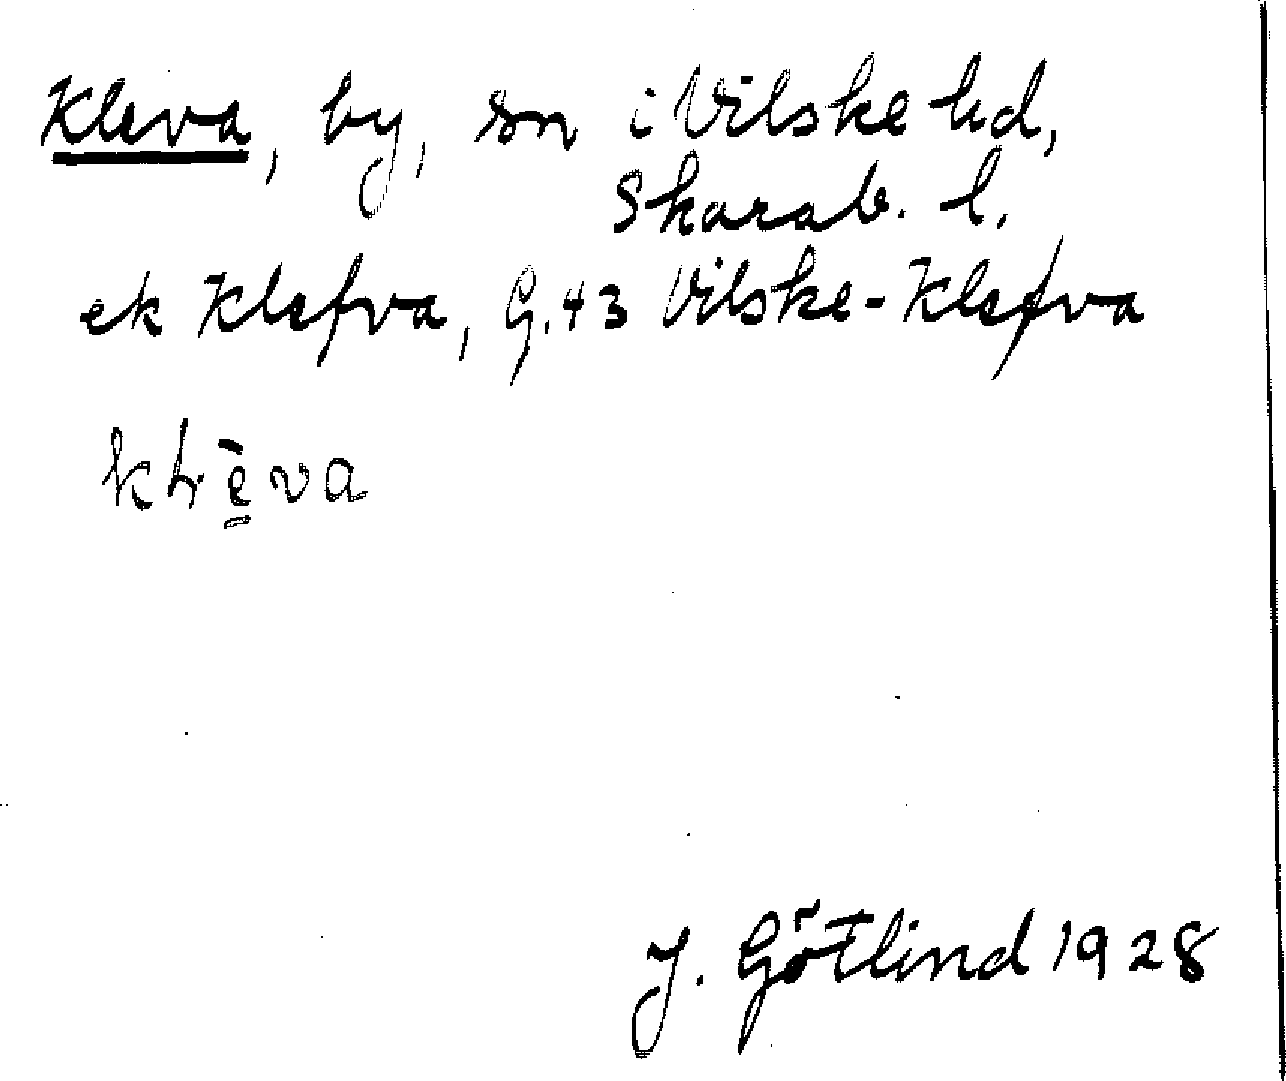 Kleva, by, sn i Vilske hd,
Skarab. l.
ek Klefva, G. 43 Vilske-Klefva
J. Götlind 1928